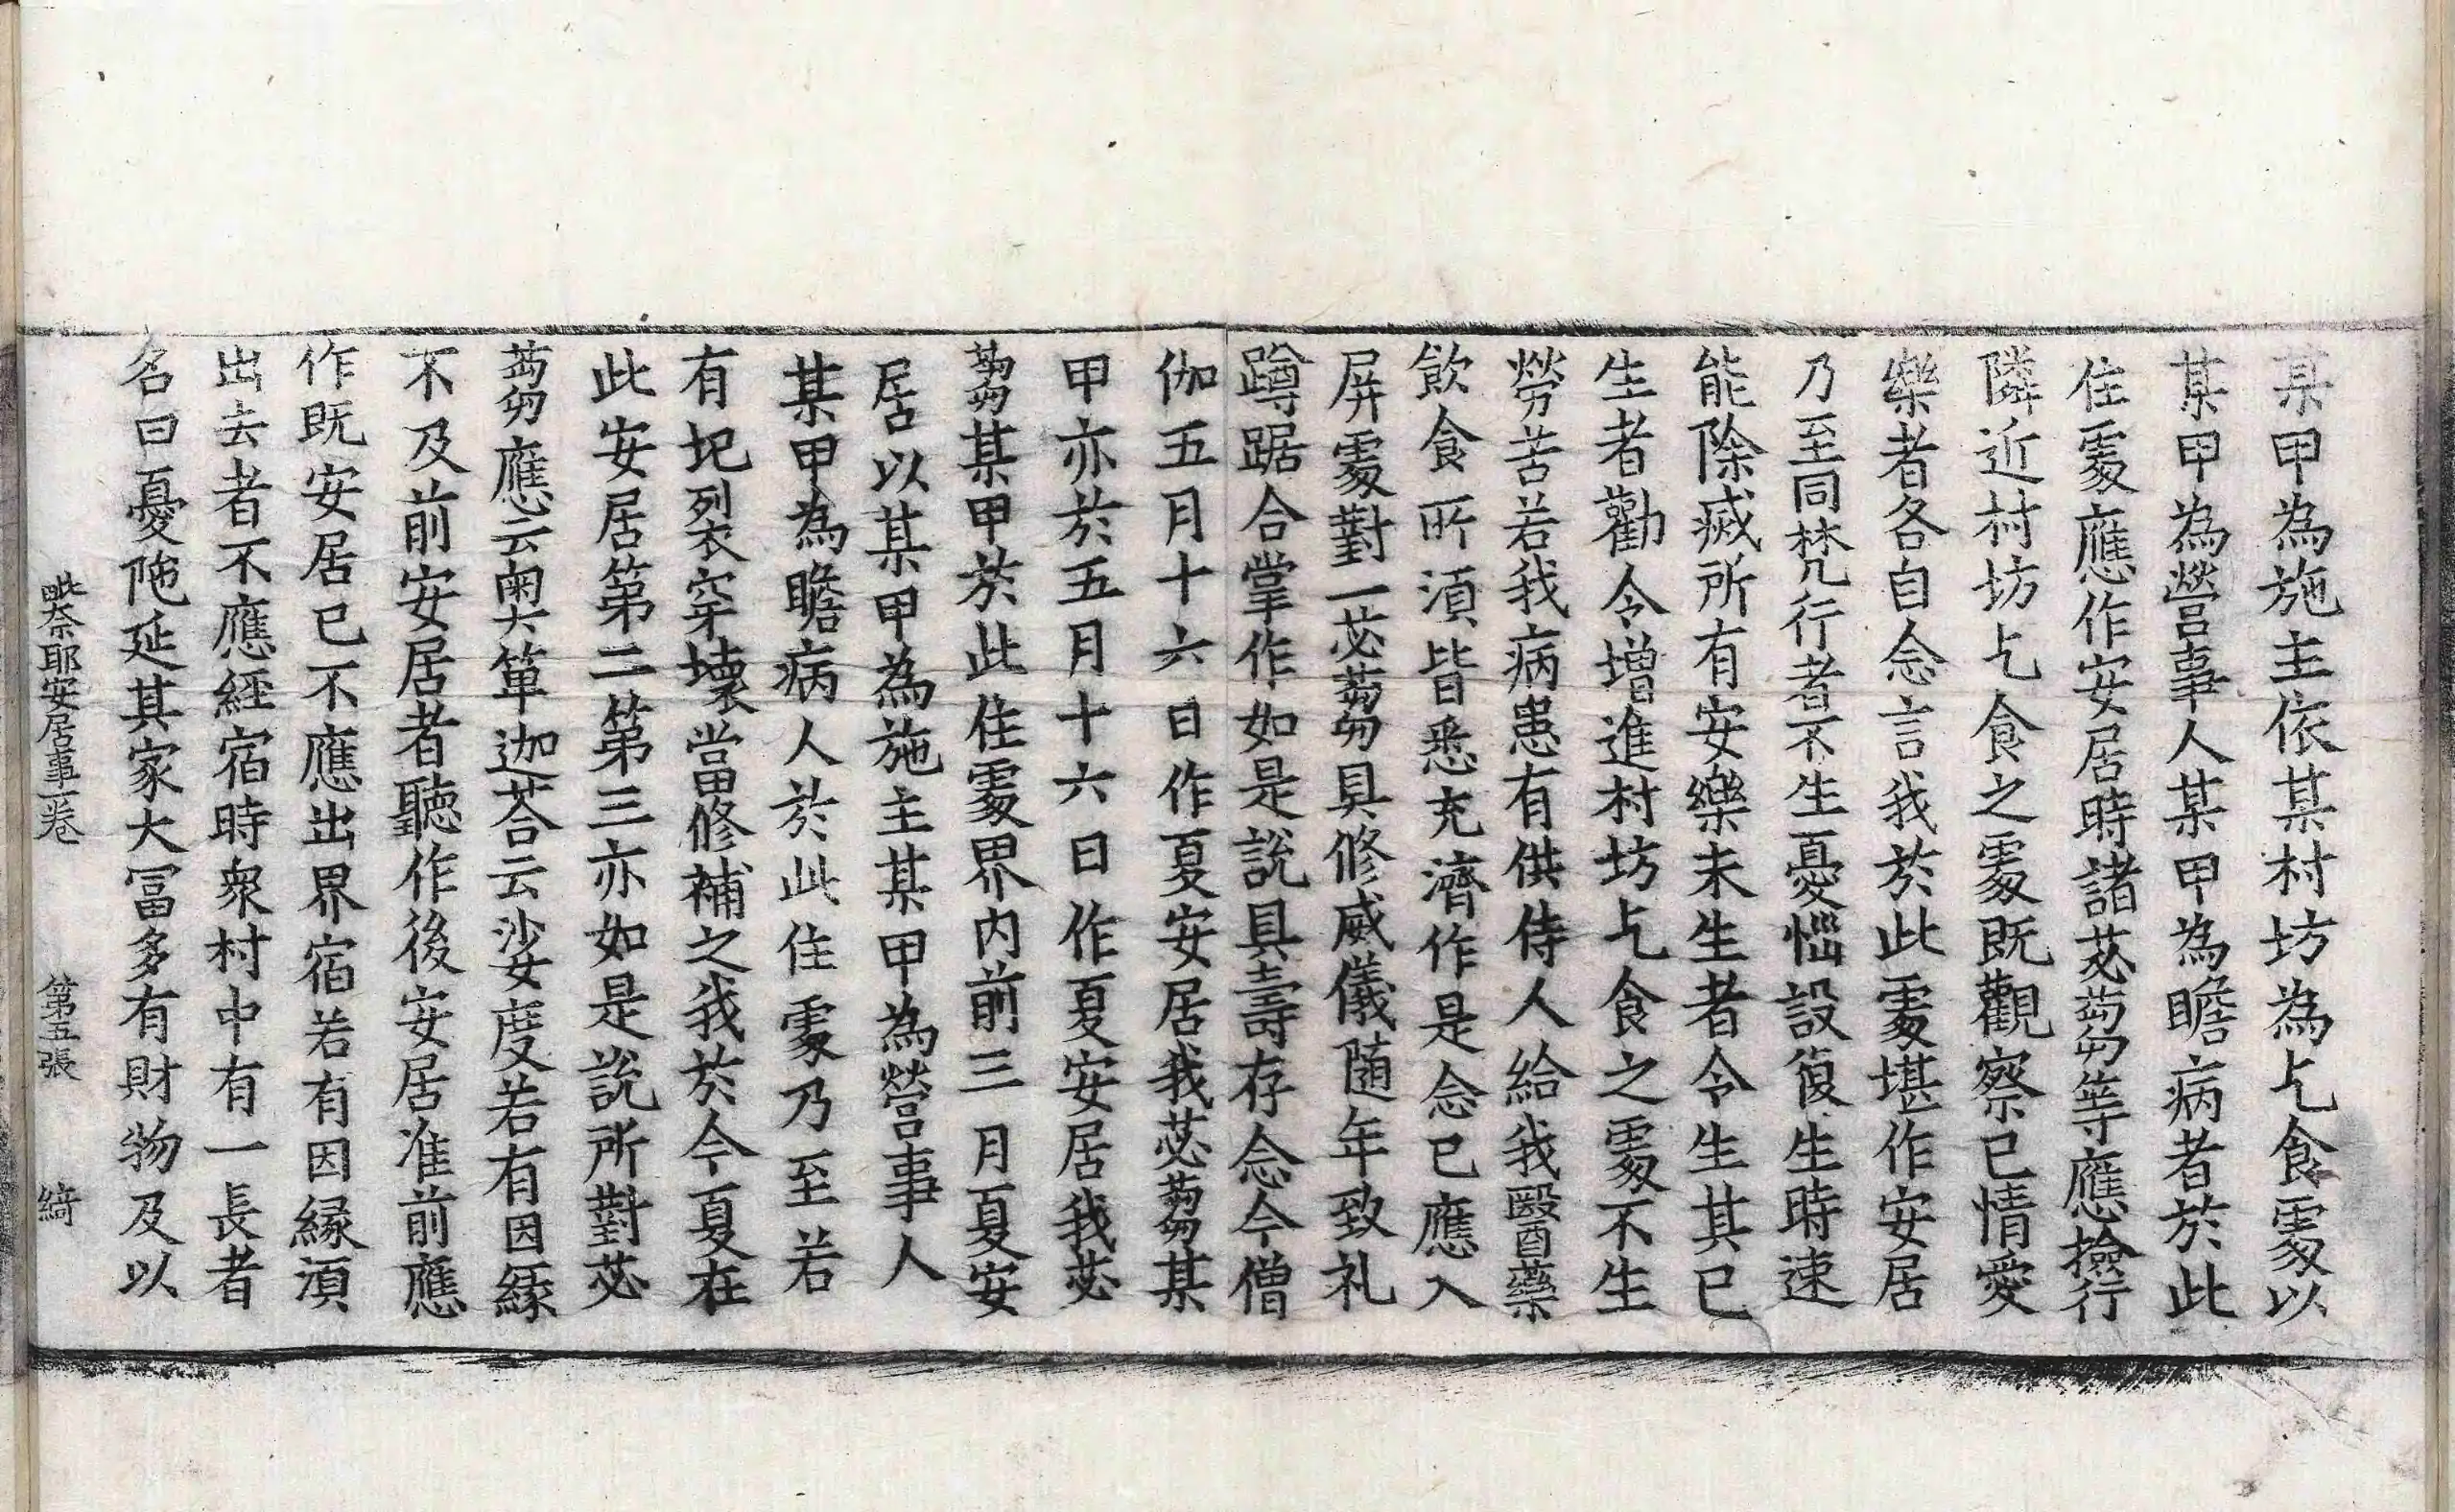 某甲為施主依某村坊為乞食處以
某甲為營事人某甲為瞻病者於此
住處應作安居時諸苾蒭等應撿行
隣近村坊乞食之處既觀察已情愛
樂者各自念言我於此處堪作安居
乃至同梵行者不生憂惱設復生時速
能除滅所有安樂未生者令生其已
生者勸令增進村坊乞食之處不生
勞苦若我病患有供侍人給我醫藥
飲食所須皆悉充濟作是念已應入
屏處對一苾蒭具修威儀随年致礼
蹲踞合掌作如是說具壽存念今僧
伽五月十六日作夏安居我苾蒭某
甲亦於五月十六日作夏安居我苾
蒭某甲於此住處界内前三月夏安
居以某甲為施主某甲為營事人
某甲為瞻病人於此住處乃至若
有圮裂穿壞當修補之我於今夏在
此安居第二第三亦如是說所對苾
蒭應云奧箄迦荅云娑度若有因緣
不及前安居者聽作後安居准前應
作既安居已不應出界宿若有因縁須
出去者不應經宿時衆村中有一長者
名曰憂陁延其家大冨多有財物及以
毗奈耶安居事一卷 第五張 綺